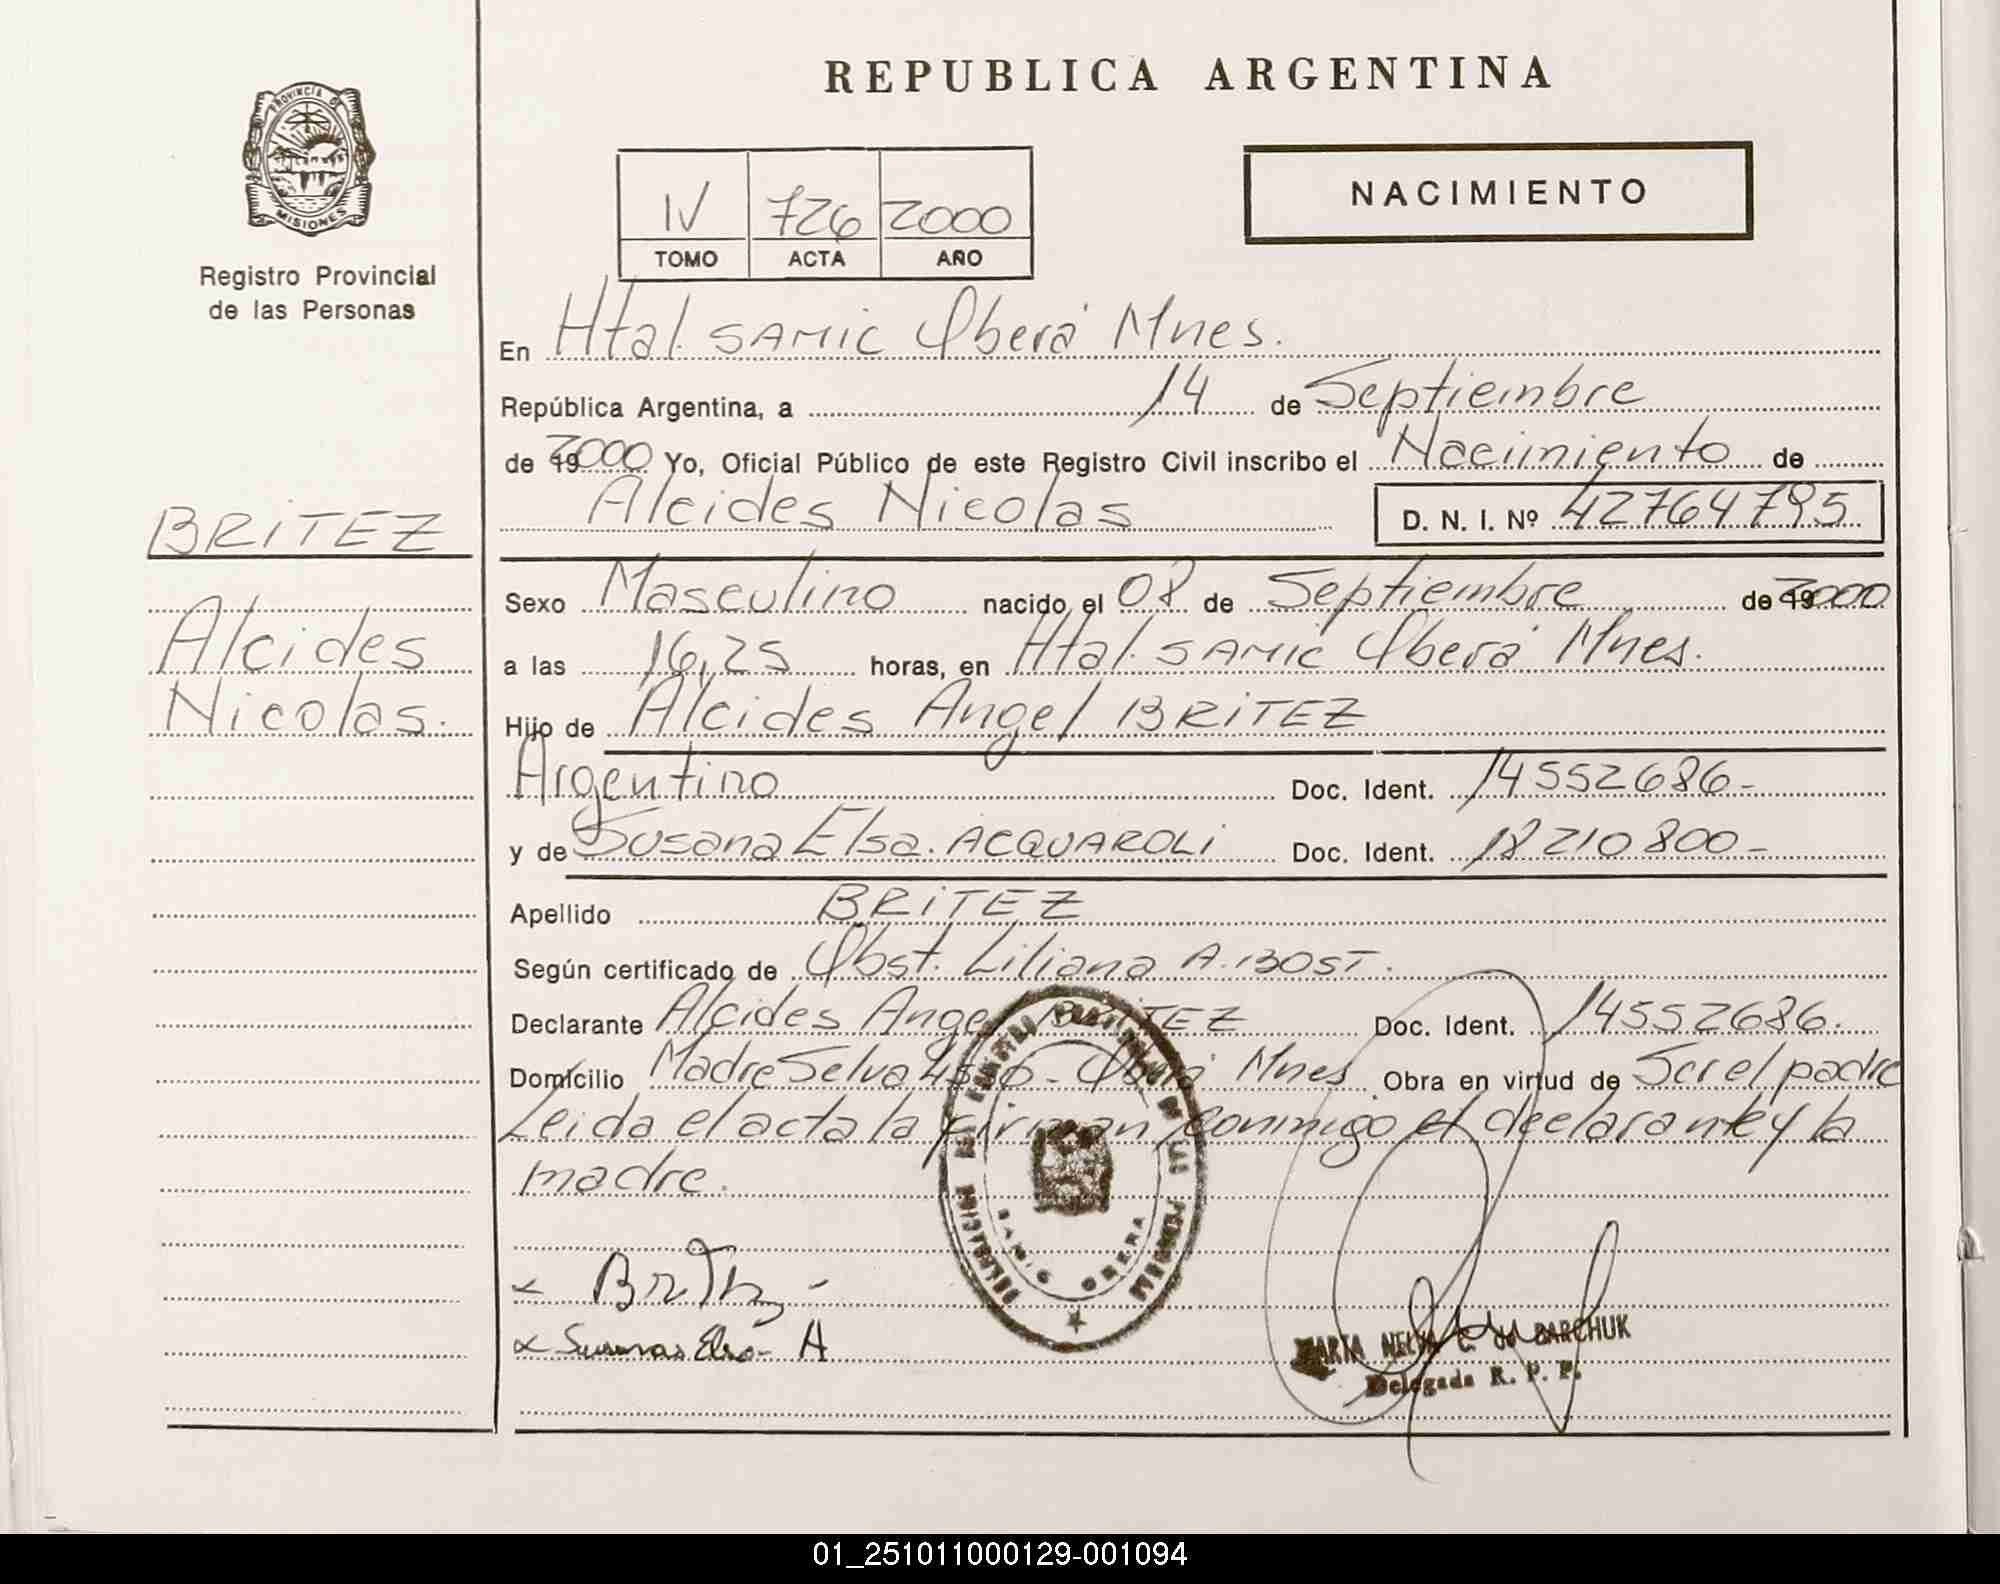 REPUBLICA ARGENTINA
PROVINCIA DE
MISIONES
Registro Provincial
de las Personas
NACIMIENTO
IV 726 2000
TOMO ACTA AÑO
En Htal. SAMIC Oberá Mnes.
República Argentina, a 14 de Septiembre
de 2000 Yo, Oficial Público de este Registro Civil inscribo el Nacimiento de
Alcides Nicolas D. N. I. Nº 42764795
BRITEZ
Alcides
Nicolas.
Sexo Masculino nacido el 08 de Septiembre de 2000
a las 16,25 horas, en Htal. SAMIC Oberá Mnes.
Hijo de Alcides Angel BRITEZ
Argentino Doc. Ident. 14552686-
y de Susana Elsa. ACQUAROLI Doc. Ident. 18210800-
Apellido BRITEZ
Según certificado de Obst. Liliana A. BOST.
Declarante Alcides Angel BRITEZ Doc. Ident. 14552686.
Domicilio Madre Selva - Oberá Mnes. Obra en virtud de Ser el padre
Leida el acta la firman conmigo el declarante y la
madre.
SAMIC OBERA
Susana Elsa A
MARTA BARCHUK
Delegada R. P. P.
01_251011000129-001094